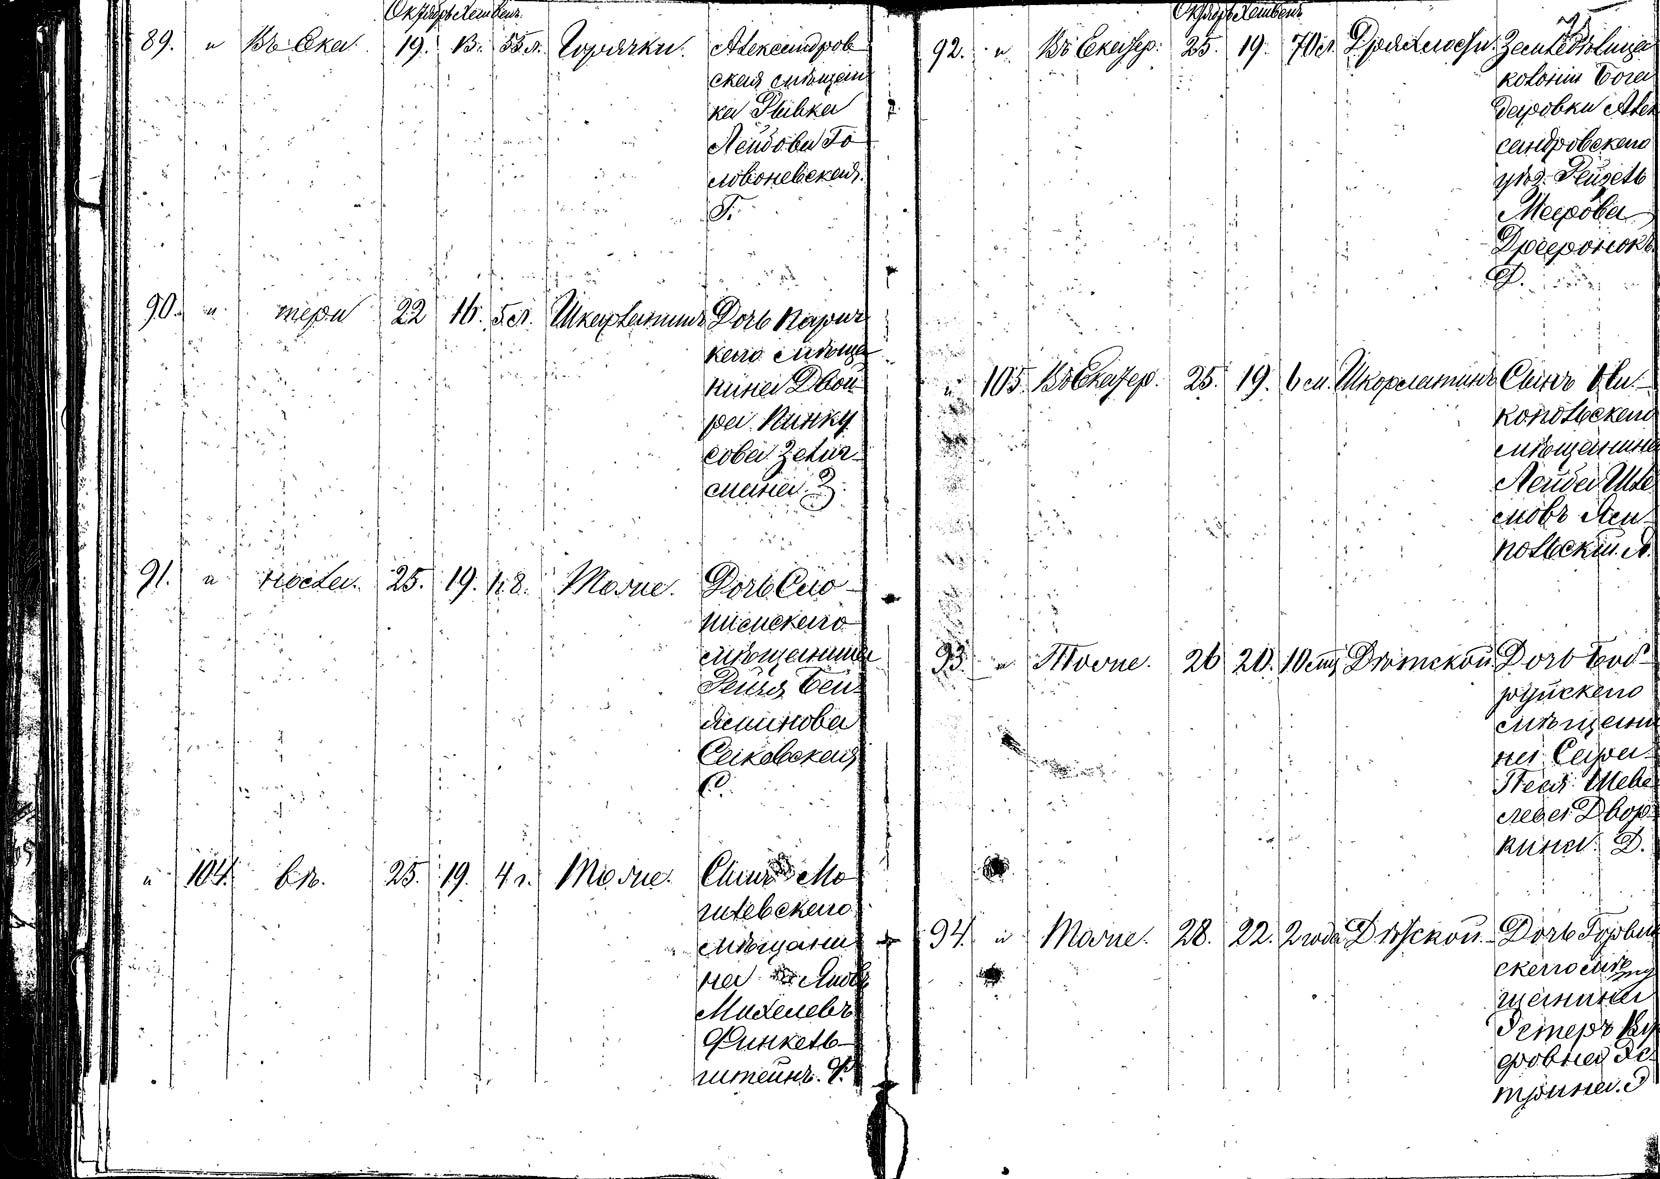 Октябрь Хешвенъ
89. " Въ Ека 19. 13. 55 л. Горячки. Александров
ская мѣщан
ка Рывка
Лейбова Го
ловоневская.
Г.
90. " тери 22 16. 5 л. Шкарлатинъ Дочь Парич
каго мѣща
нина Двой
ра Пинку
сова Зелик
мана З.
91. " носла. 25. 19. Тоже. Дочь Сло
нимскаго
мѣщанина
Рейзя Бен
яминова
Саковская
С.
" 104. въ. 25. 19. 4 г. Тоже. Сынъ Мо
гилевскаго
мѣщани
на Яковъ
Михелевъ
Финкель
штейнъ. Ф.
Октябрь Хешвенъ
92. " Въ Екатер. 25. 19. 70 л. Дряхлости. Земледѣлица
колоніи Бога
даровки Алек
сандровскаго
уѣзд. Рейзель
Меерова
Дреeронокъ.
Д.
" 105. Въ Екатер. 25. 19. 6 м. Шкорлатинъ Сынъ Ни
копольскаго
мѣщанина
Лейба Шле
мовъ Ямпольскій. Я.
93. " Тоже. 26 20. 10 мц Дѣтской. Дочь Боб
руйскаго
мѣщани
на Сара
Песя Шеве
лева Двор
кина Д.
94. " Тоже. 28. 22. 2 года Дѣтской. Дочь Горвал
скаго мѣ
щанина
Эстеръ
Эс
трина. Э